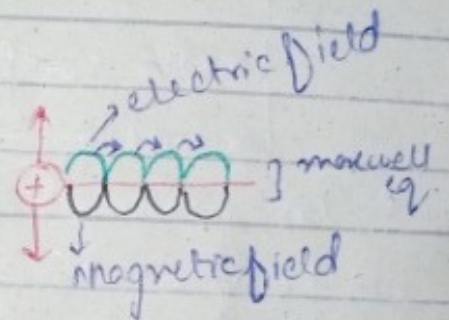 electric field
+
maxwell
eq.
magnetic field